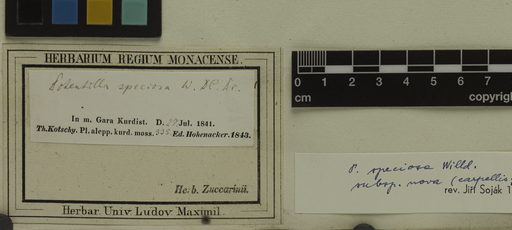 HERBARIUM REGIUM MONACENSE.
Potentilla speciosa W. DC. &c.
In m. Gara Kurdist. D. 27 Jul. 1841.
Th. Kotschy. Pl. alepp. kurd. moss. 335. Ed. Hohenacker. 1843.
Herb. Zuccarinii.
Herbar. Univ. Ludov. Maximil.
0 1 2 3 4 5 6 7
cm copyrigh
P. speciosa Willd.
subsp. nova (carpellis
rev. Jiří Soják 1